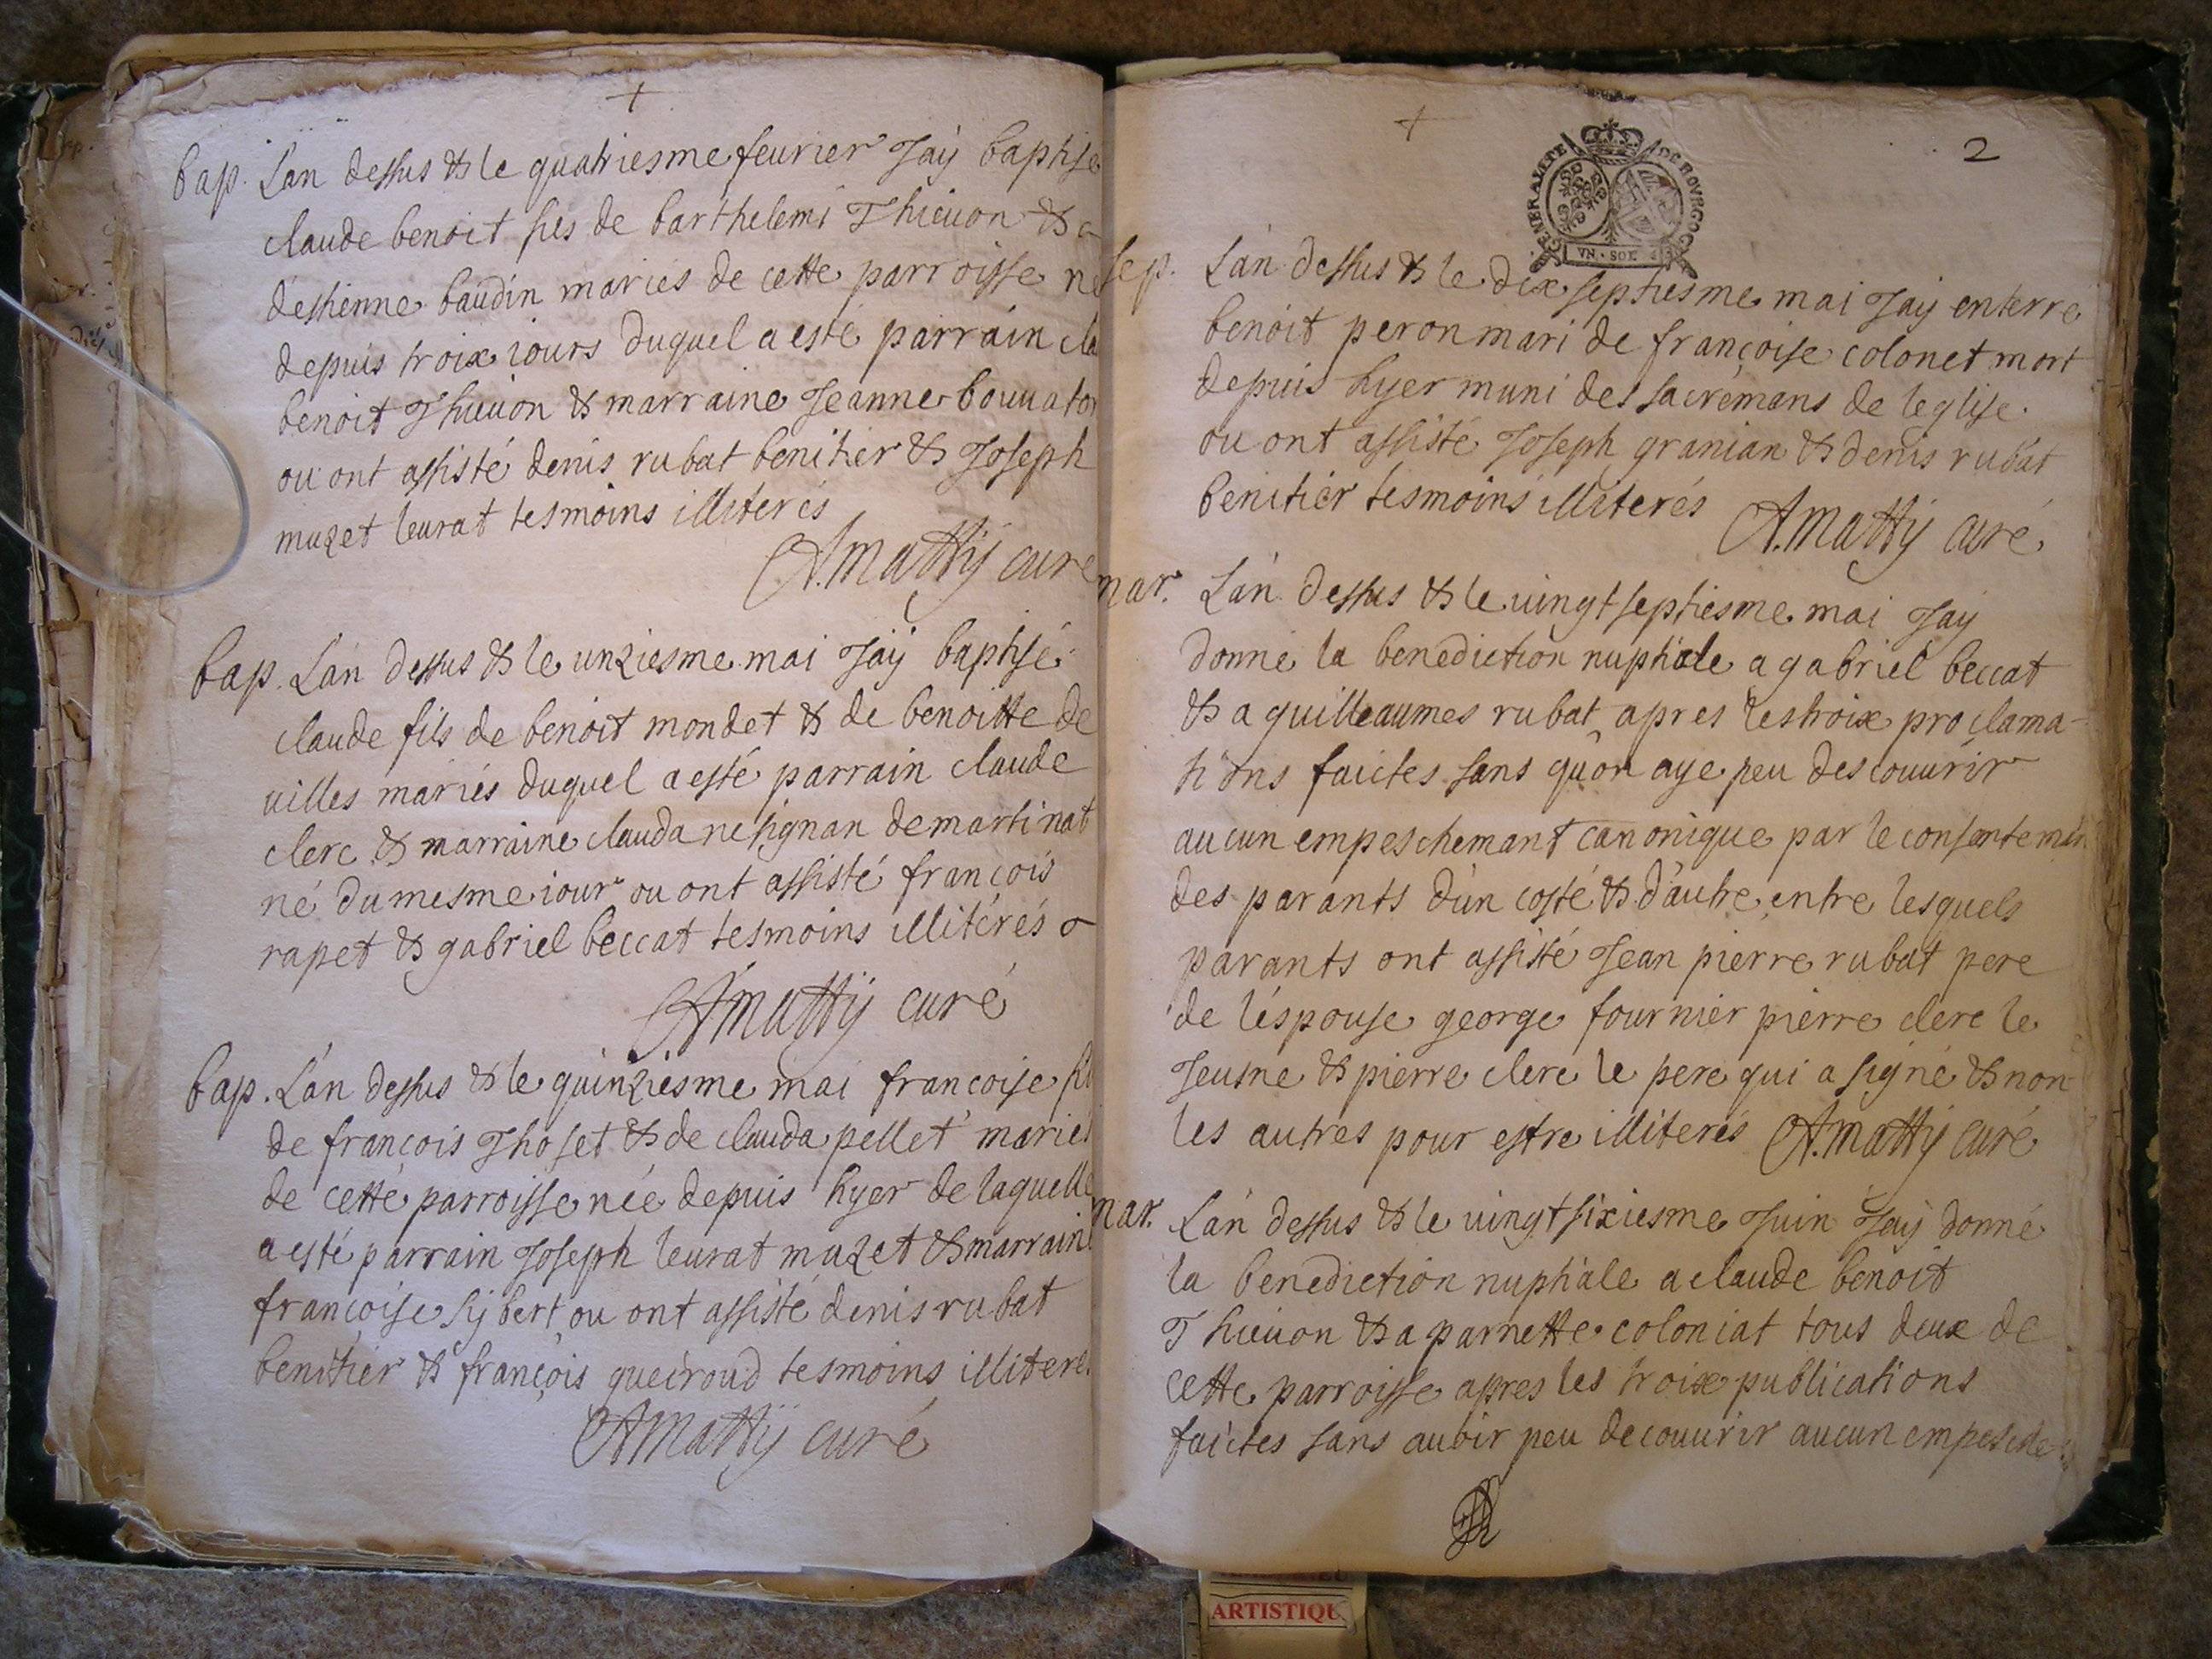 +
bap. Lan dessus & le quatriesme feurier Jaÿ baptise
claude benoit fils de barthelemi Thieuon & a
destienne baudin mariés de cette parroisse né
depuis troix iours duquel a esté parrain cla
benoit Thieuon & marraine Jeanne bouuato
ou ont assisté denis rubat benitier & Joseph
muzet leurat tesmoins illiterés
A. Mattÿ curé
bap. Lan dessus & le unziesme mai Jaÿ baptisé
claude fils de benoit mondet & de benoitte de
uilles mariés duquel a esté parrain claude
clerc & marraine clauda resignan de martinat
né du mesme iour ou ont assisté françois
rapet & gabriel beccat tesmoins illitérés
A Mattÿ curé
bap. Lan dessus & le quinziesme mai francoise
de françois Thoset & de clauda pellet mariés
de cette parroisse née depuis hyer de laquelle
a esté parrain Joseph leurat muzet & marraine
francoise sÿbert ou ont assisté denis rubat
benitier & françois queiroud tesmoins illiteré
A Mattÿ curé
+
GENERALITE DE BOVRGOG
VN. SOL
2
sep. Lan dessus & le dix septiesme mai Jaÿ enterré
benoit peron mari de françoise colonet mort
depuis hyer muni des sacremans de leglise.
ou ont assisté Joseph granian & denis rubat
benitier tesmoins illiterés A. Mattÿ curé
mar. Lan dessus & le uingt septiesme mai Jaÿ
donné la benediction nuptiale a gabriel beccat
& a guilleaumes rubat apres les troix proclama-
tions faictes sans quon aye peu descouurir
aucun empeschemant canonique par le consentemen
des parants dun costé & dautre entre lesquels
parants ont assisté Jean pierre rubat pere
de lespouse george fournier pierre clerc le
Jeusne & pierre clerc le pere qui a signé & non
les autres pour estre illiterés A. Mattÿ curé
mar. Lan dessus & le uingt sixiesme Juin Jaÿ donné
la benediction nuptiale a claude benoit
Thieuon & a parnette coloniat tous deux de
cette parroisse apres les troix publications
faictes sans auoir peu decouurir aucun empesche
ARTISTIQU